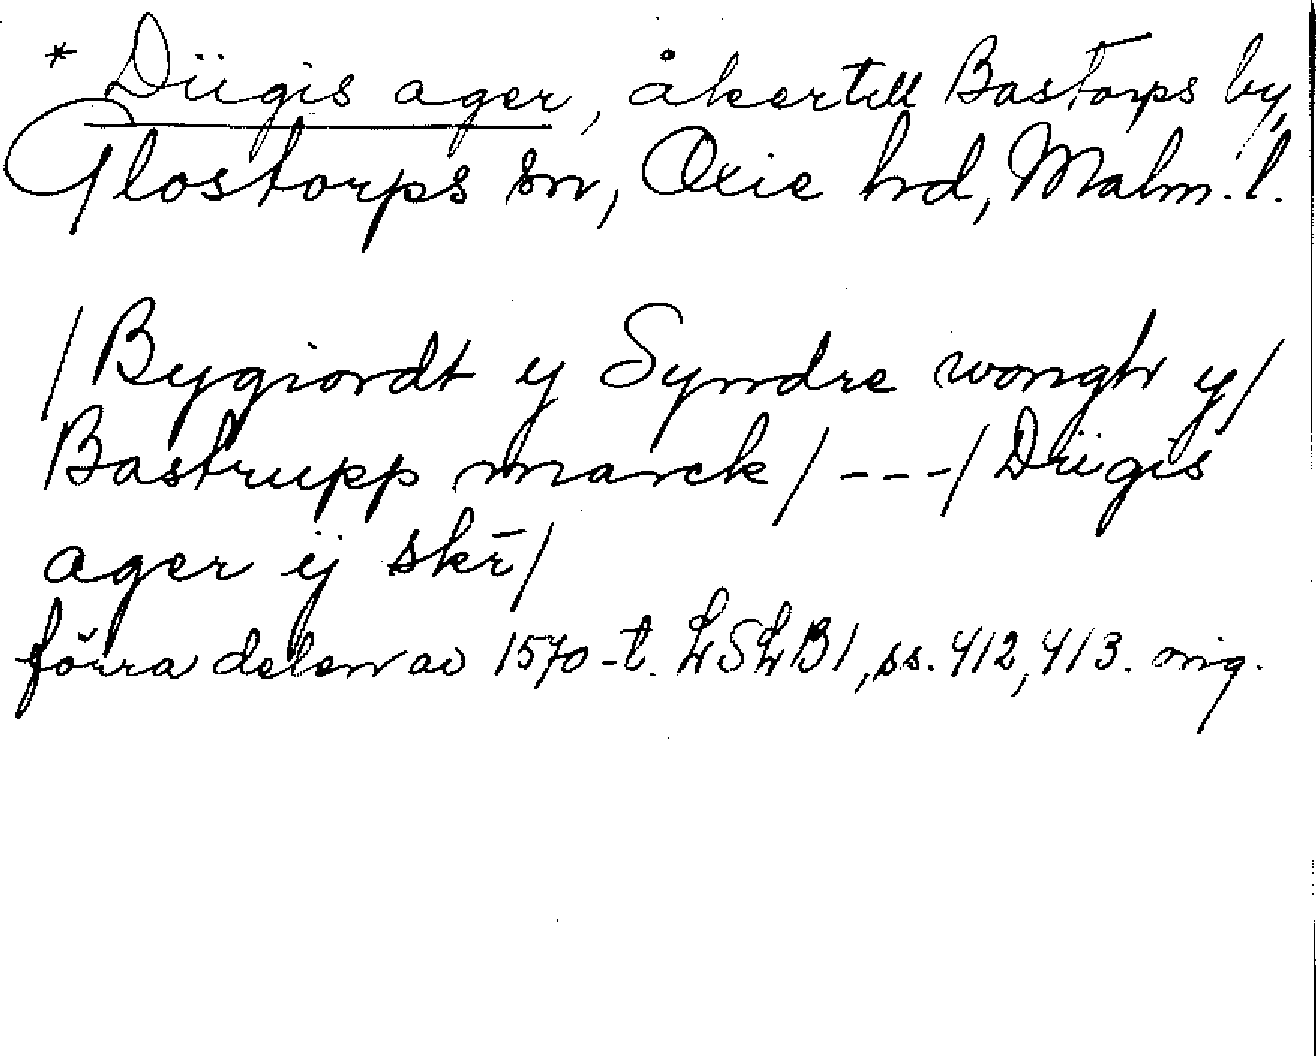 * Diigis ager, åker till Bastorps by,
Glostorps sn, Oxie hd, Malm. l.
/Bygiordt y Syndre wongh y/
Bastrupp marck/ ---/Diigis
ager ij skē/
förra delen av 1570-t. LSLB1, ss. 412, 413. orig.